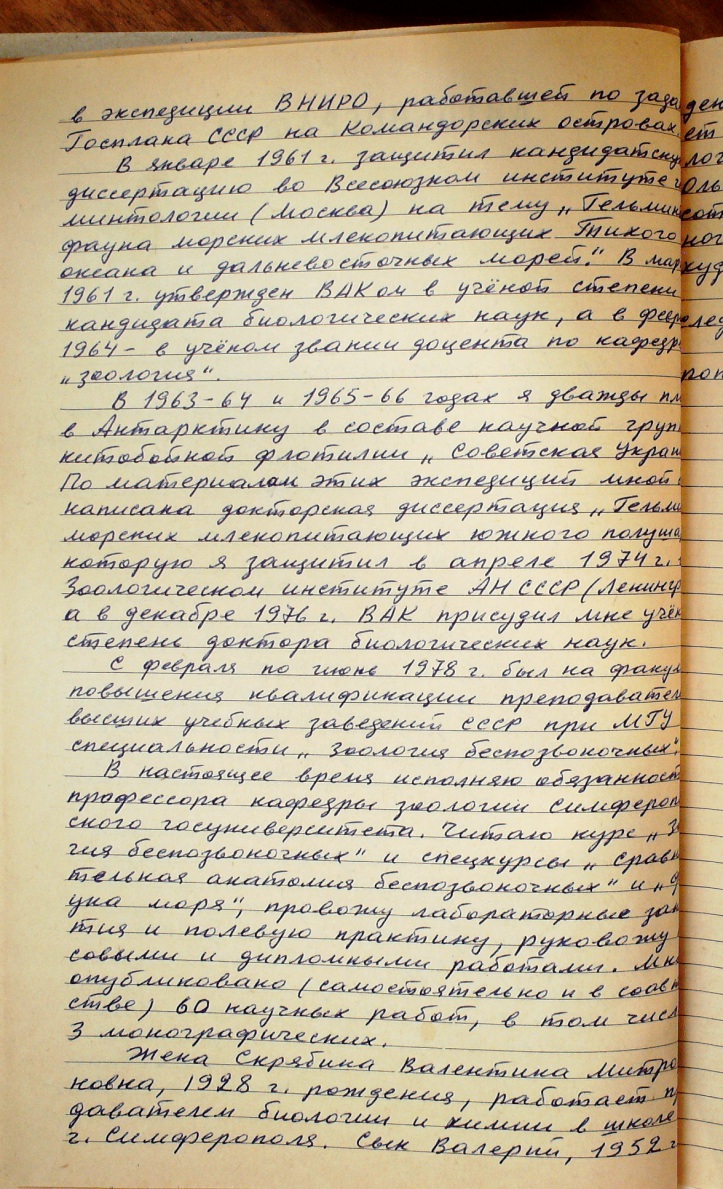 в экспедиции ВНИРО, работавшей по зада
Госплана СССР на Командорских островах.
В январе 1961 г. защитил кандидатску
диссертацию во Всесоюзном институте г
минтологии (Москва) на тему „Гельмин
фауна морских млекопитающих Тихого
океана и дальневосточных морей." В мар
1961 г. утвержден ВАКом в учёной степени
кандидата биологических наук, а в февр
1964 - в учёном звании доцента по кафедр
„зоология".
В 1963-64 и 1965-66 годах я дважды пл
в Антарктику в составе научной груп
китобойной флотилии „Советская Украи
По материалам этих экспедиций мной
написана докторская диссертация „Гельми
морских млекопитающих южного полуша
которую я защитил в апреле 1974 г.
Зоологическом институте АН СССР (Ленингр
а в декабре 1976 г. ВАК присудил мне учён
степень доктора биологических наук.
С февраля по июнь 1978 г. был на факул
повышения квалификации преподавател
высших учебных заведений СССР при МГУ
специальности „Зоология беспозвоночных".
В настоящее время исполняю обязанност
профессора кафедры зоологии Симфероп
ского госуниверситета. Читаю курс „Зо
гия беспозвоночных" и спецкурсы „Сравн
тельная анатомия беспозвоночных" и „Ф
уна моря", провожу лабораторные зан
тия и полевую практику, руковожу
совыми и дипломными работами. Мно
опубликовано (самостоятельно и в соав
стве) 60 научных работ, в том числ
3 монографических.
Жена Скрябина Валентина Митро
новна, 1928 г. рождения, работает п
давателем биологии и химии в школе
г. Симферополя. Сын Валерий, 1952 г
ден
ет
лог
оль
сот
ног
худ
лед
поп